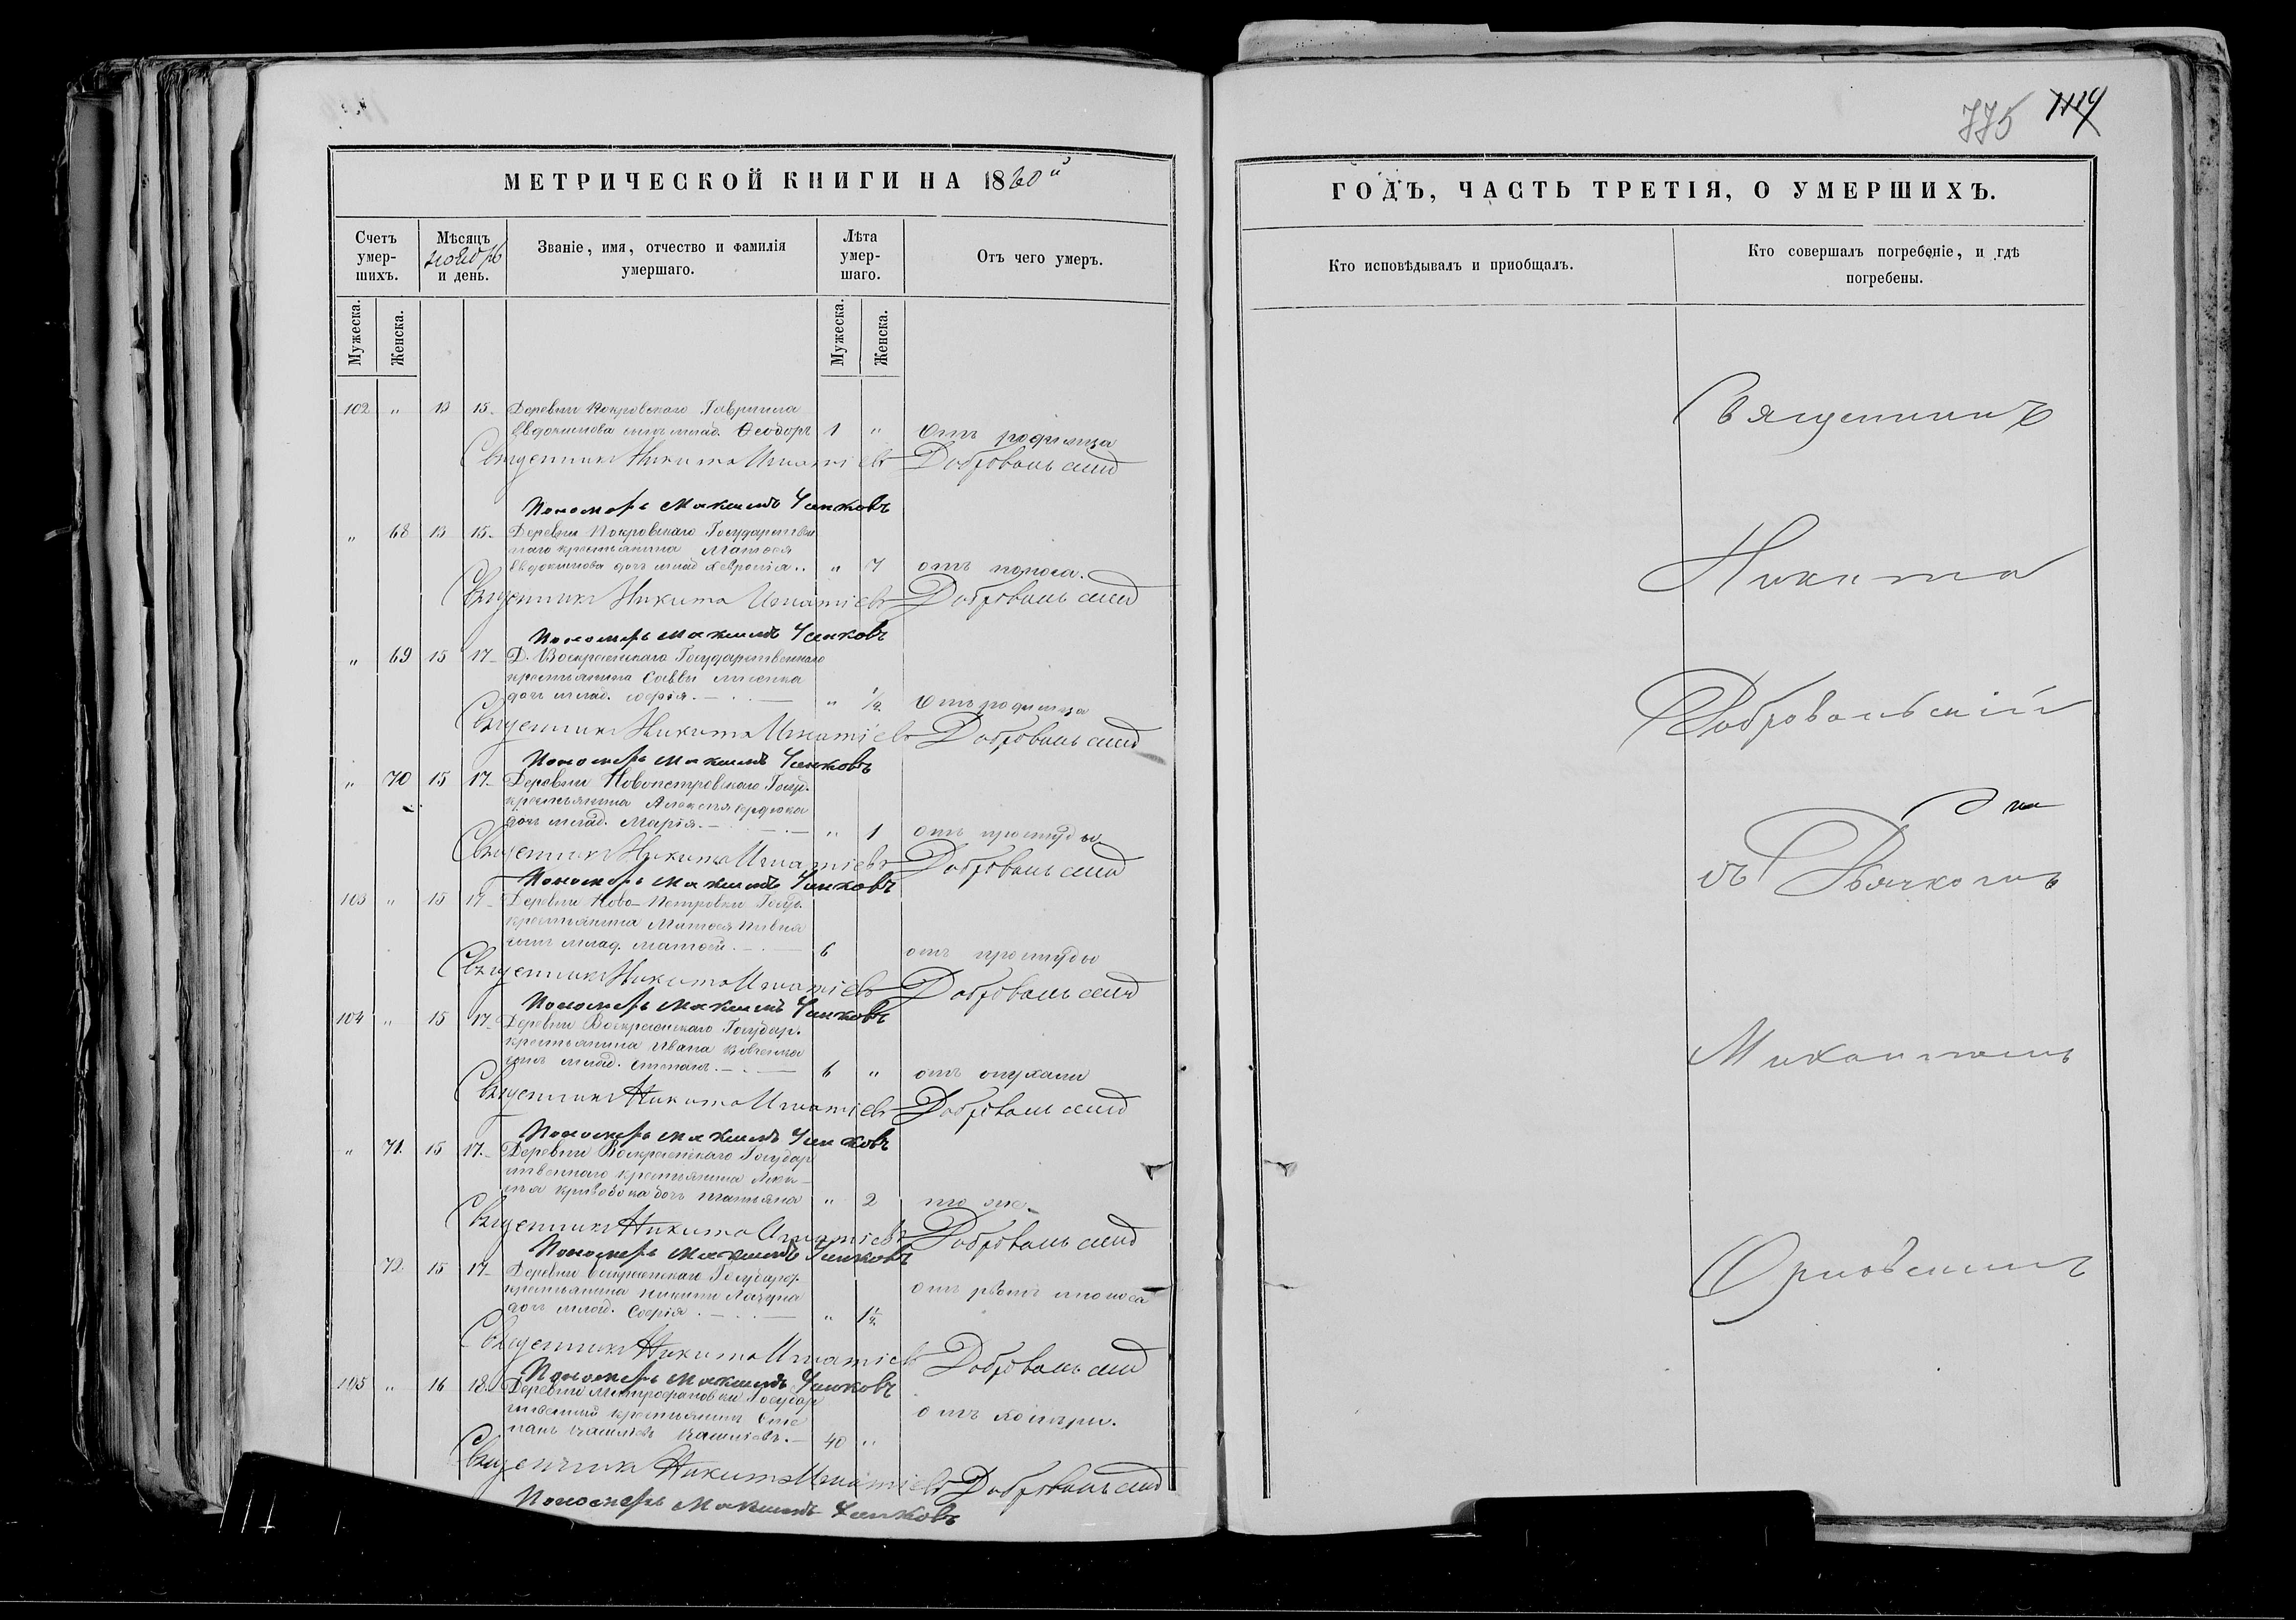 775 1119
МЕТРИЧЕСКОЙ КНИГИ НА 1860й
Счетъ умер-шихъ.
Мѣсяцъ ноябрь и день.
Званіе, имя, отчество и фамилія умершаго.
Лѣта умер-шаго.
Отъ чего умеръ.
Мужеска. Женска.
Мужеска. Женска.
102 " 13 15. Деревни Покровскаго Гавриила
Евдокимова сынъ млад. Ѳеодоръ 1 " Отъ родимца
Священникъ Никита Игнатіевъ Добровольскій
Пономарь Максимъ Чайковъ
" 68 13 15. Деревни Покровскаго Государствен
наго крестьянина Матѳея
Евдокимова дочь млад. Хевронія " 7 отъ поноса.
Священникъ Никита Игнатіевъ Добровольскій
Пономарь Максимъ Чайковъ
" 69 15 17 Д. Воскресенскаго Государственнаго
крестьянина Саввы
дочь млад. " 1/2 Отъ родимца
Священникъ Никита Игнатіевъ Добровольскій
Пономарь Максимъ Чайковъ
" 70 15 17 Деревни Новопетровскаго Госуд.
крестьянина Алексея Сердюка
дочь млад. Марія. " 1 отъ простуды
Священникъ Никита Игнатіевъ Добровольскій
Пономарь Максимъ Чайковъ
103 " 15 17 Деревни Ново-Петровки Госуд.
крестьянина Матѳея Пивня
сынъ млад. Матѳей. 6 отъ простуды
Священникъ Никита Игнатіевъ Добровольскій
Пономарь Максимъ Чайковъ
104 " 15 17 Деревни Воскресенскаго Государ.
крестьянина Ивана Вовченка
сынъ млад. Степанъ. 6 " отъ опухали
Священникъ Никита Игнатіевъ Добровольскій
Пономарь Максимъ Чайковъ
" 71. 15 17. Деревни Воскресенскаго Государ
ственнаго крестьянина
Кривобока дочь Татьяна " 2 то же
Священникъ Никита Игнатіевъ Добровольскій
Пономарь Максимъ Чайковъ
72 15 17 Деревни Воскресенскаго Государ.
крестьянина Никиты отъ рвоты и поноса
дочь млад. Софія. " 1 1/2
Священникъ Никита Игнатіевъ Добровольскій
Пономарь Максимъ Чайковъ
105 " 16 18. Деревни Митрофановки Государ
ственный крестьянинъ Сте
панъ 40 "
Священникъ Никита Игнатіевъ Добровольскій
Пономарь Максимъ Чайковъ
ГОДЪ, ЧАСТЬ ТРЕТІЯ, О УМЕРШИХЪ.
Кто исповѣдывалъ и пріобщалъ.
Кто совершалъ погребеніе, и гдѣ погребены.
Священникъ
Никита
Добровольскій
съ Дьячкомъ
Михаиломъ
Орловскимъ